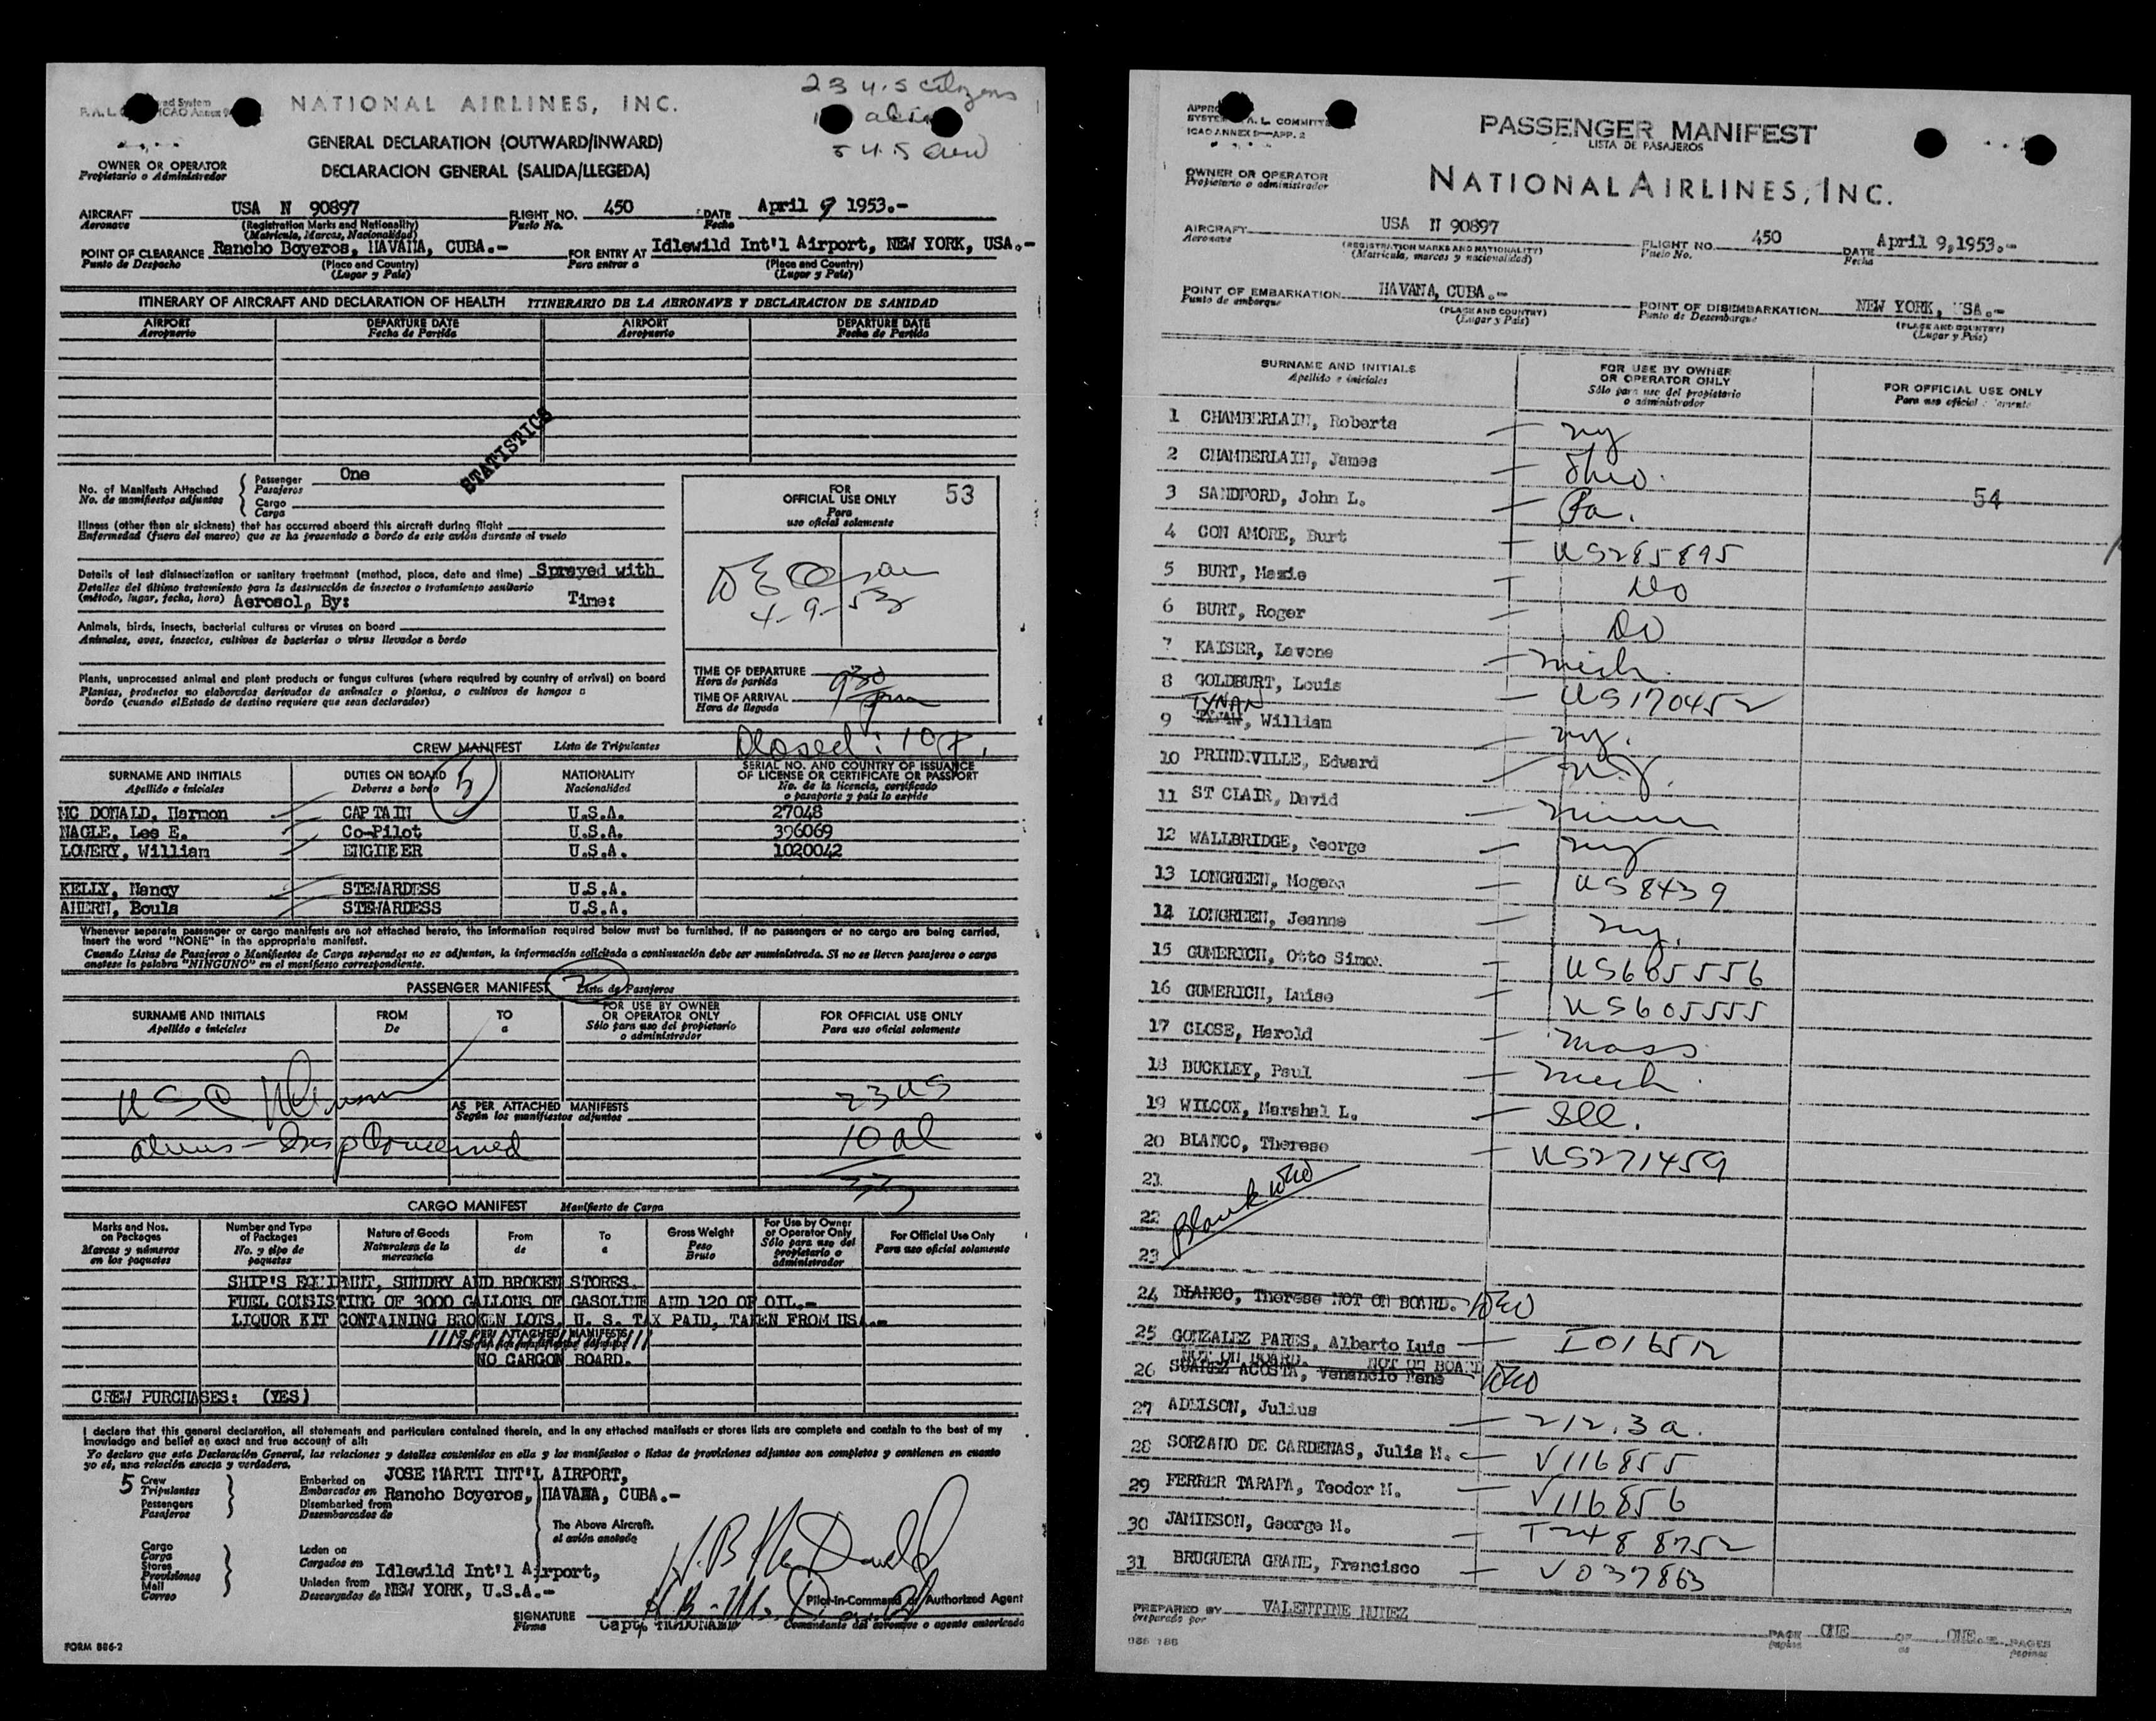 23 U.S citizens
NATIONAL AIRLINES, INC.
GENERAL DECLARATION (OUTWARD/INWARD)
5 U.S Crew
DECLARACION GENERAL (SALIDA/LLEGEDA)
OWNER OR OPERATOR
Propietario o Administrador
AIRCRAFT USA N 90897 FLIGHT NO. 450 DATE April 9 1953.-
Aeronave (Registration Marks and Nationality) Vuelo No. Fecha
(Matricula, Marcas, Nacionalidad)
POINT OF CLEARANCE Rancho Boyeros, HAVANA, CUBA.- FOR ENTRY AT Idlewild Int'l Airport, NEW YORK, USA.-
Punto de Despacho (Place and Country) Para entrar a (Place and Country)
(Lugar y Pais) (Lugar y Pais)
ITINERARY OF AIRCRAFT AND DECLARATION OF HEALTH ITINERARIO DE LA AERONAVE Y DECLARACION DE SANIDAD
AIRPORT DEPARTURE DATE AIRPORT DEPARTURE DATE
Aeropuerto Fecha de Partida Aeropuerto Fecha de Partida
STATISTICS
No. of Manifests Attached Passenger One
No. de manifiestos adjuntos Pasajeros
Cargo
Carga
Illness (other then air sickness) that has occurred aboard this aircraft during flight
Enfermedad (fuera del mareo) que se ha presentado a bordo de este avión durante el vuelo
Details of last disinsectization or sanitary treatment (method, place, date and time) Sprayed with
Detalles del último tratamiento para la destrucción de insectos o tratamiento sanitario
(método, lugar, fecha, hora) Aerosol, By: Time:
Animals, birds, insects, bacterial cultures or viruses on board
Animales, aves, insectos, cultivos de bacterias o virus llevados a bordo
Plants, unprocessed animal and plant products or fungus cultures (where required by country of arrival) on board
Plantas, productos no elaborados derivados de animales o plantas, o cultivos de hongos a
bordo (cuando elEstado de destino requiere que sean declarados)
FOR
OFFICIAL USE ONLY 53
Para
uso oficial solamente
4-9-53
TIME OF DEPARTURE
Hora de partida 930
TIME OF ARRIVAL
Hora de llegada
Closed: 10 P.
CREW MANIFEST Lista de Tripulantes
SURNAME AND INITIALS DUTIES ON BOARD 5 NATIONALITY SERIAL NO. AND COUNTRY OF ISSUANCE
Apellido e iniciales Deberes a bordo Nacionalidad OF LICENSE OR CERTIFICATE OR PASSPORT
No. de la licencia, certificado
o pasaporte y pais lo expide
MC DONALD, Harmon CAPTAIN U.S.A. 27048
NAGLE, Lee E. Co-Pilot U.S.A. 396069
LOWERY, William ENGINEER U.S.A. 1020042
KELLY, Nancy STEWARDESS U.S.A.
AHERN, Boula STEWARDESS U.S.A.
Whenever separate passenger or cargo manifests are not attached hereto, the information required below must be furnished. If no passengers or no cargo are being carried,
insert the word "NONE" in the appropriate manifest.
Cuando Listas de Pasajeros o Manifiestos de Carga separados no se adjuntan, la información solicitada a continuación debe ser suministrada. Si no se lleven pasajeros o carga
anotese la palabra "NINGUNO" en el manifiesto correspondiente.
PASSENGER MANIFEST Lista de Pasajeros
SURNAME AND INITIALS FROM TO FOR USE BY OWNER FOR OFFICIAL USE ONLY
Apellido e iniciales De a OR OPERATOR ONLY Para uso oficial solamente
Sólo para uso del propietario
o administrador
23 US
AS PER ATTACHED MANIFESTS
Según los manifiestos adjuntos
10 al
33
CARGO MANIFEST Manifiesto de Carga
Marks and Nos. Number and Type Nature of Goods From To Gross Weight For Use by Owner For Official Use Only
on Packages of Packages Naturaleza de la de a Peso or Operator Only Para uso oficial solamente
Marcas y números No. y tipo de mercancia Bruto Sólo para uso del
en los paquetes paquetes propietario o
administrador
SHIP'S EQUIPMNT, SUNDRY AND BROKEN STORES.
FUEL CONSISTING OF 3000 GALLONS OF GASOLINE AND 120 OF OIL.-
LIQUOR KIT CONTAINING BROKEN LOTS, U. S. TAX PAID, TAKEN FROM USA.-
AS PER ATTACHED MANIFESTS
NO CARGON BOARD.
CREW PURCHASES: (YES)
I declare that this general declaration, all statements and particulars contained therein, and in any attached manifests or stores lists are complete and contain to the best of my
knowledge and belief an exact and true account of all:
Yo declaro que esta Declaración General, las relaciones y detalles contenidos en ella y los manifiestos o listas de provisiones adjuntos son completos y contienen en cuanto
yo sé, una relación exacta y verdadera.
5 Crew Embarked on JOSE MARTI INT'L AIRPORT,
Tripulantes Embarcados en Rancho Boyeros, HAVANA, CUBA.-
Passengers Disembarked from
Pasajeros Desembarcados de
The Above Aircraft.
el avión anotado
Cargo Laden on
Carga Cargados en Idlewild Int'l Airport,
Stores
Provisiones Unladen from NEW YORK, U.S.A.-
Mail Descargados de
Correo
Pilot-in-Command or Authorized Agent
SIGNATURE
Firma Capt.
Comandante del aeronave o agente autorizado
FORM 886-2
PASSENGER MANIFEST
LISTA DE PASAJEROS
ICAO ANNEX 9—APP. 2
OWNER OR OPERATOR
Propietario o administrador
NATIONAL AIRLINES, INC.
AIRCRAFT USA N 90897 FLIGHT NO. 450 DATE April 9,1953.-
Aeronave (REGISTRATION MARKS AND NATIONALITY) Vuelo No. Fecha
(Matricula, marcas y nacionalidad)
POINT OF EMBARKATION HAVANA, CUBA.- POINT OF DISEMBARKATION NEW YORK, USA.-
Punto de embarque (PLACE AND COUNTRY) Punto de Desembarque (PLACE AND COUNTRY)
(Lugar y Pais) (Lugar y Pais)
SURNAME AND INITIALS FOR USE BY OWNER FOR OFFICIAL USE ONLY
Apellido e iniciales OR OPERATOR ONLY Para uso oficial
Sólo para uso del propietario
o administrador
1 CHAMBERLAIN, Roberta — ny
2 CHAMBERLAIN, James — Ohio.
3 SANDFORD, John L. — Pa. 54
4 CON AMORE, Burt — US285895
5 BURT, Mazie — Do
6 BURT, Roger Do
7 KAISER, Lavone — mich.
8 GOLDBURT, Louis — US170452
TYNAN
9 William — ny.
10 PRINDIVILLE, Edward — n.y.
11 ST CLAIR, David — minn
12 WALLBRIDGE, George — ny
13 LONGREEN, Mogens — US8439
14 LONGREEN, Jeanne — ny.
15 GUMERICH, Otto Simon — US605556
16 GUMERICH, Luise — US605555
17 CLOSE, Harold — mass
18 BUCKLEY, Paul — mich.
19 WILCOX, Marshal L. — Ill.
20 BLANCO, Therese — US271459
21
22 Blank
23
24 BLANCO, Therese NOT ON BOARD.
25 GONZALEZ PARES, Alberto Luis — I016512
NOT ON BOARD. NOT ON BOARD
26 SUAREZ ACOSTA, Venancio Rene
27 ADELSON, Julius — 212.3a.
28 SORZANO DE CARDENAS, Julia M. — V116855
29 FERRER TARAFA, Teodor M. — V116856
30 JAMIESON, George M. — T2488752
31 BRUGUERA GRANE, Francisco — V037863
PREPARED BY VALENTINE NUNEZ
preparado por
PAGE ONE OF ONE.- PAGES
página de páginas